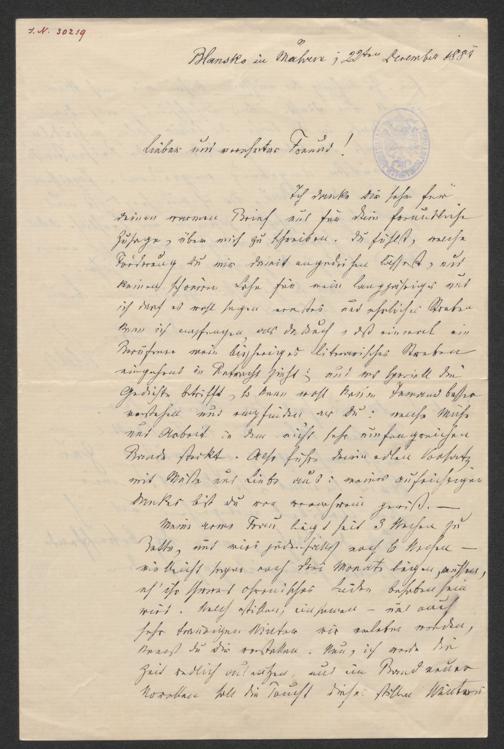 I.N. 30219
Blansko in Mähren; 22ten December 188
Lieber und verehrter Freund!
Ich danke Dir sehr für
Deinen warmen Brief und für Dein freundliche
Zusage, über mich zu schreiben. Du fühlst, welche
Förderung Du mir damit angedeihen lässest, und
keinen schönern Lohn für mein langjähriges und
ich darf es wohl sagen ernstes und ehrliches Streben
kann ich empfangen als daß einmal ein
Berufener mein bisheriges literarisches Streben
eingehend in Betracht zieht; und was speciell die
Gedichte betrifft, so kann wohl kaum Jemand besser
verstehen und empfinden als Du: welche Mühe
und Arbeit in dem nicht sehr umfangreichen
Bande steckt. Also führe Deinen edlen Vorsatz
mit Muße und Liebe aus: meines aufrichtigen
Dankes bist Du von vornherein gewiß. —
Meine arme Frau liegt seit 3 Wochen zu
Bette, und wird jedenfalls noch 6 Wochen —
vielleicht sogar noch drei Monate liegen müssen,
eh' ihr schweres chronisches Leiden behoben sein
wird. Welch stillen, einsamen — und auch
sehr traurigen Winter wir erleben werden,
kannst Du Dir vorstellen. Nun, ich werde die
Zeit redlich ausnützen, und ein Band neuer
Novellen soll die Frucht dieses stillen Winters